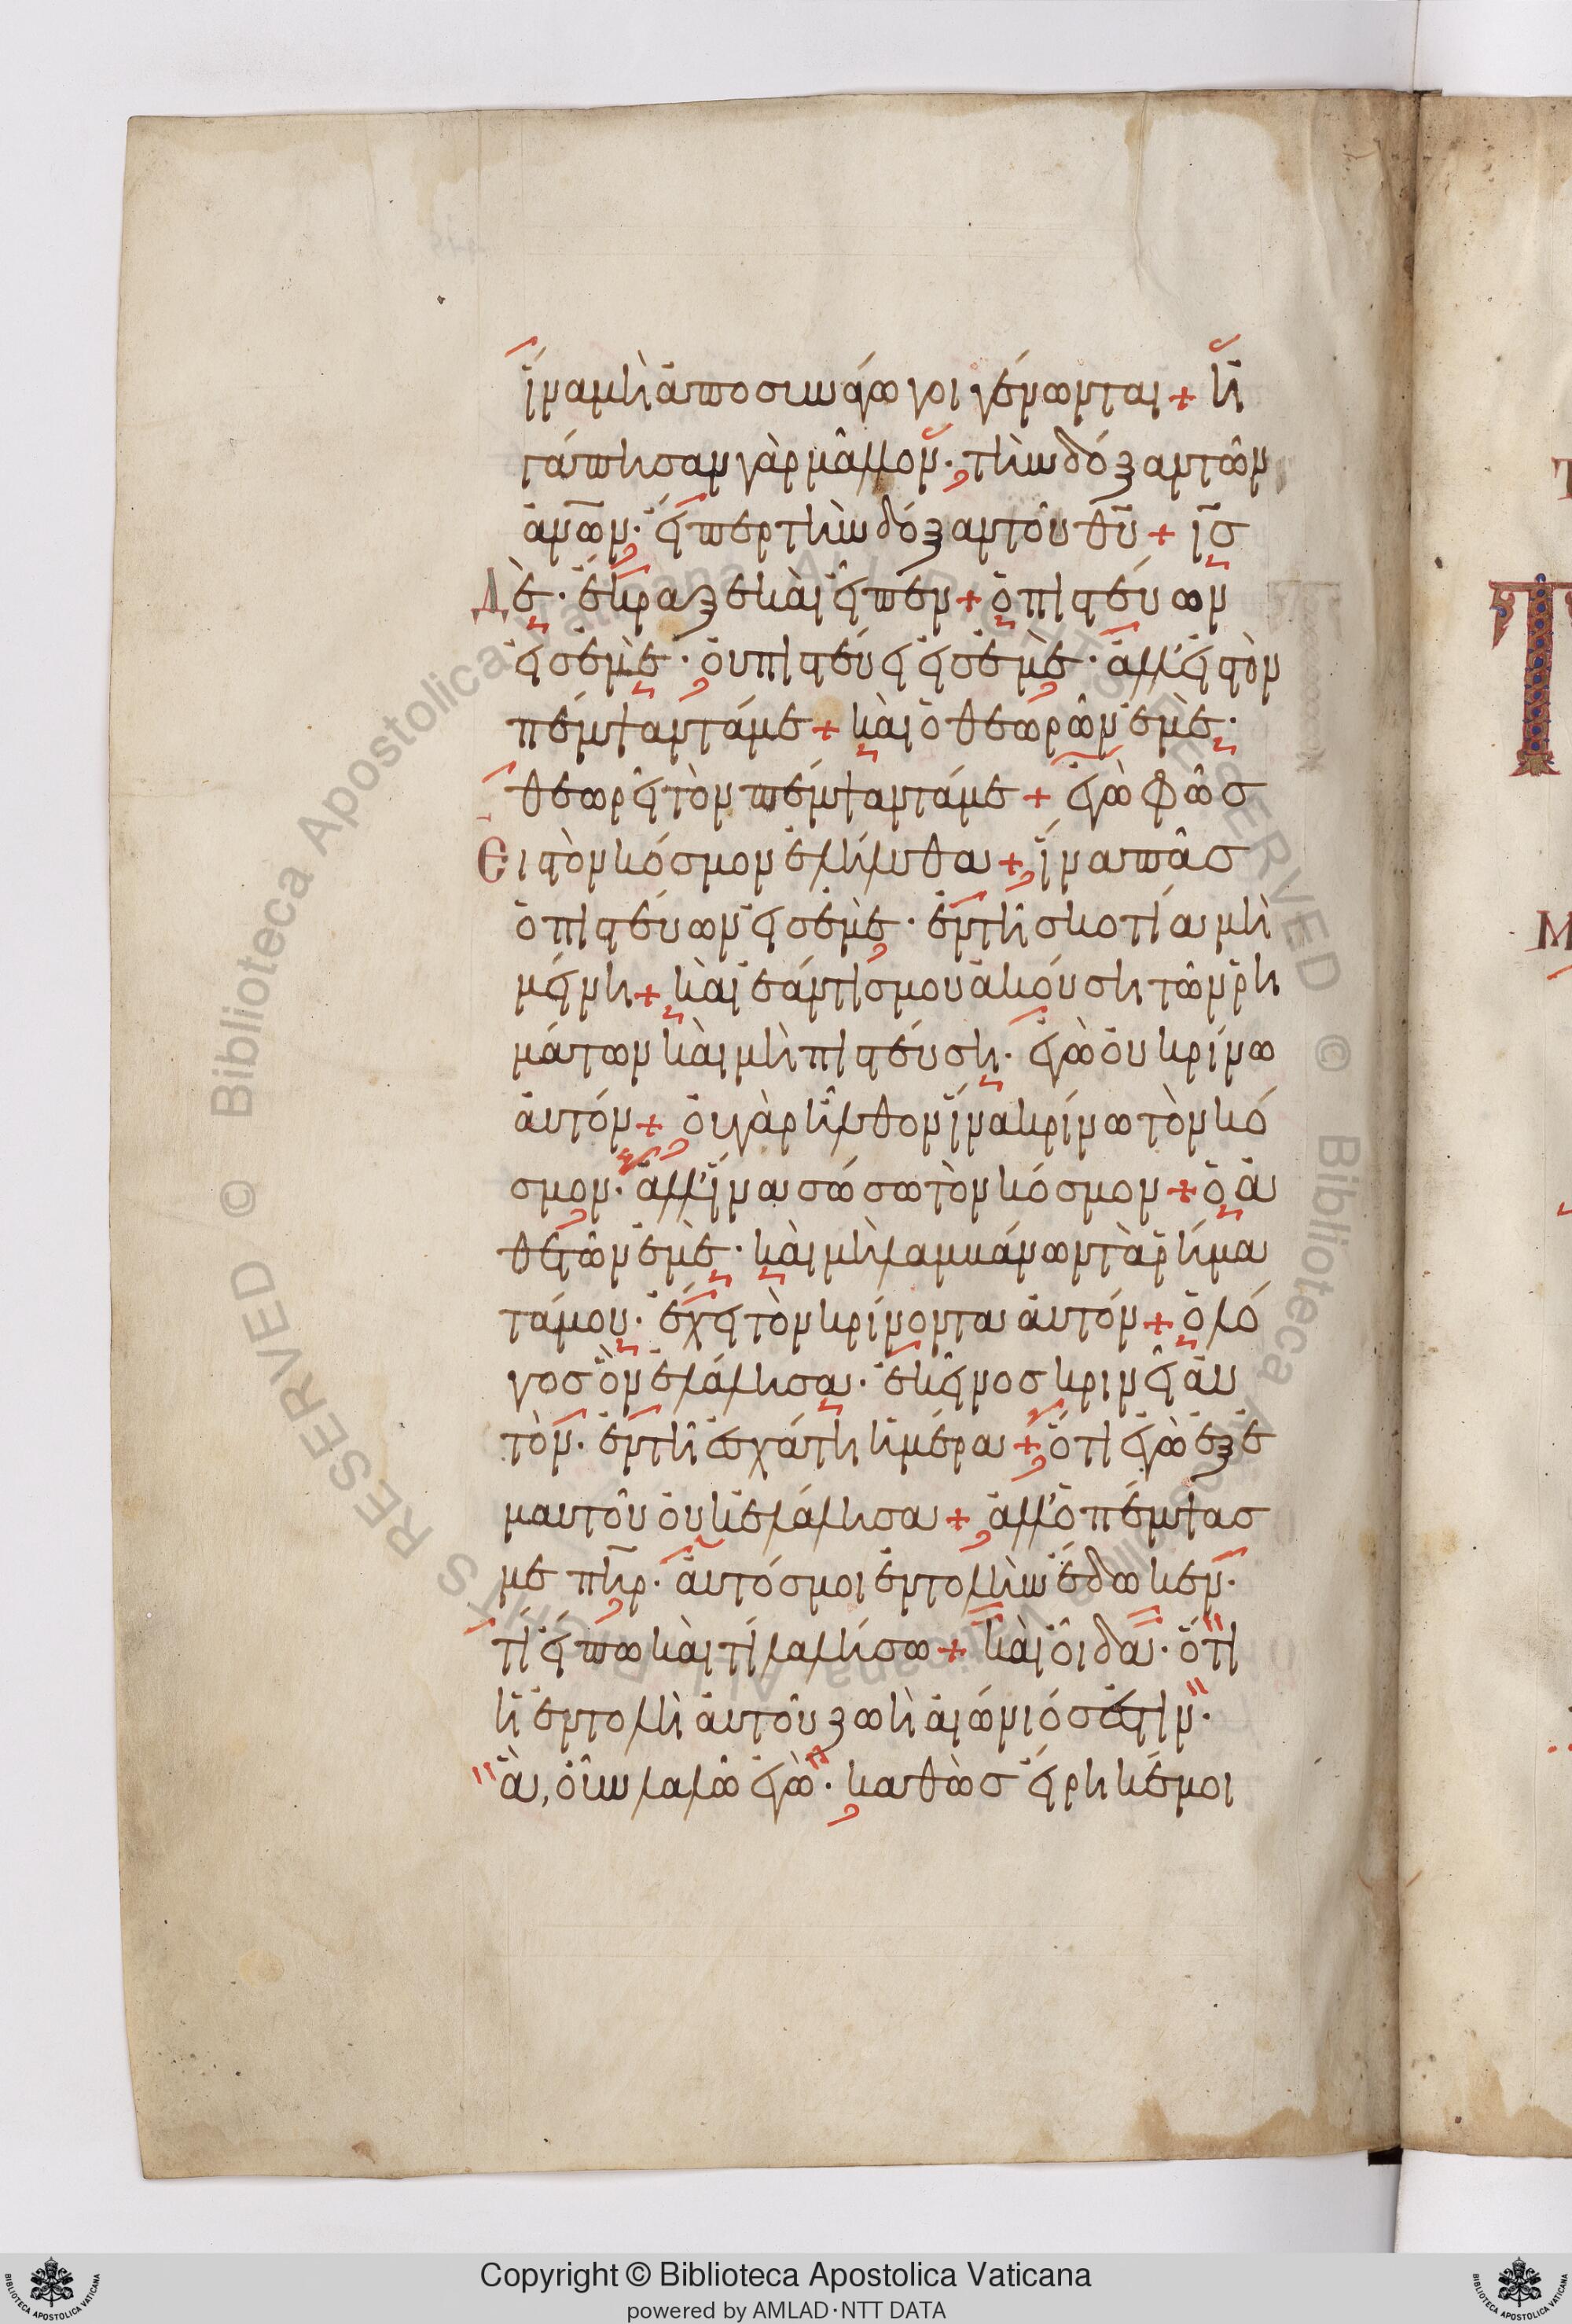 ἵνα μὴ ἀποσυνάγωγοι γένωνται + ἠ
γάπησαν γὰρ μᾶλλον · τὴν δόξαν τῶν
ἀνων · εἴπερ τὴν δόξαν τοῦ θυ + ις
Δὲ · ἔκραξε καὶ εἶπεν + ὁ πιστεύων
εἰς ἐμὲ · οὐ πιστεύει εἰς ἐμὲ · ἀλλ' εἰς τὸν
πέμψαντά με + καὶ ὁ θεωρῶν ἐμὲ ·
θεωρεῖ τὸν πέμψαντά με + ἐγὼ φῶς
Εἰς τὸν κόσμον ἐλήλυθα + ἵνα πᾶς
ὁ πιστεύων εἰς ἐμὲ · ἐν τῆ σκοτία μὴ
μείνη + καὶ ἐάν τίς μου ἀκούση τῶν ῥη
μάτων καὶ μὴ πιστεύση · ἐγὼ οὐ κρίνω
αὐτόν + οὐ γὰρ ἦλθον ἵνα κρίνω τὸν κό
σμον · ἀλλ' ἵνα σώσω τὸν κόσμον + ὁ ἀ
θετῶν ἐμὲ · καὶ μὴ λαμβάνων τὰ ῥήμα
τά μου · ἔχει τὸν κρίνοντα αὐτόν + ὁ λό
γος ὃν ἐλάλησα · ἐκεῖνος κρινεῖ αὐ
τὸν · ἐν τῆ ἐσχάτη ἡμέρα + ὅτι ἐγὼ ἐξ ἐ
μαυτοῦ οὐκ ἐλάλησα + ἀλλ' ὁ πέμψας
με πηρ · αὐτός μοι ἐντολὴν ἔδωκεν ·
τί εἴπω καὶ τί λαλήσω + καὶ οἶδα · ὅτι
ἡ ἐντολὴ αὐτοῦ ζωὴ αἰώνιός ἐστιν ·
ἃ, οὖν λαλῶ ἐγὼ · καθὼς εἴρηκέ μοι
Copyright © Biblioteca Apostolica Vaticana
powered by AMLAD·NTT DATA